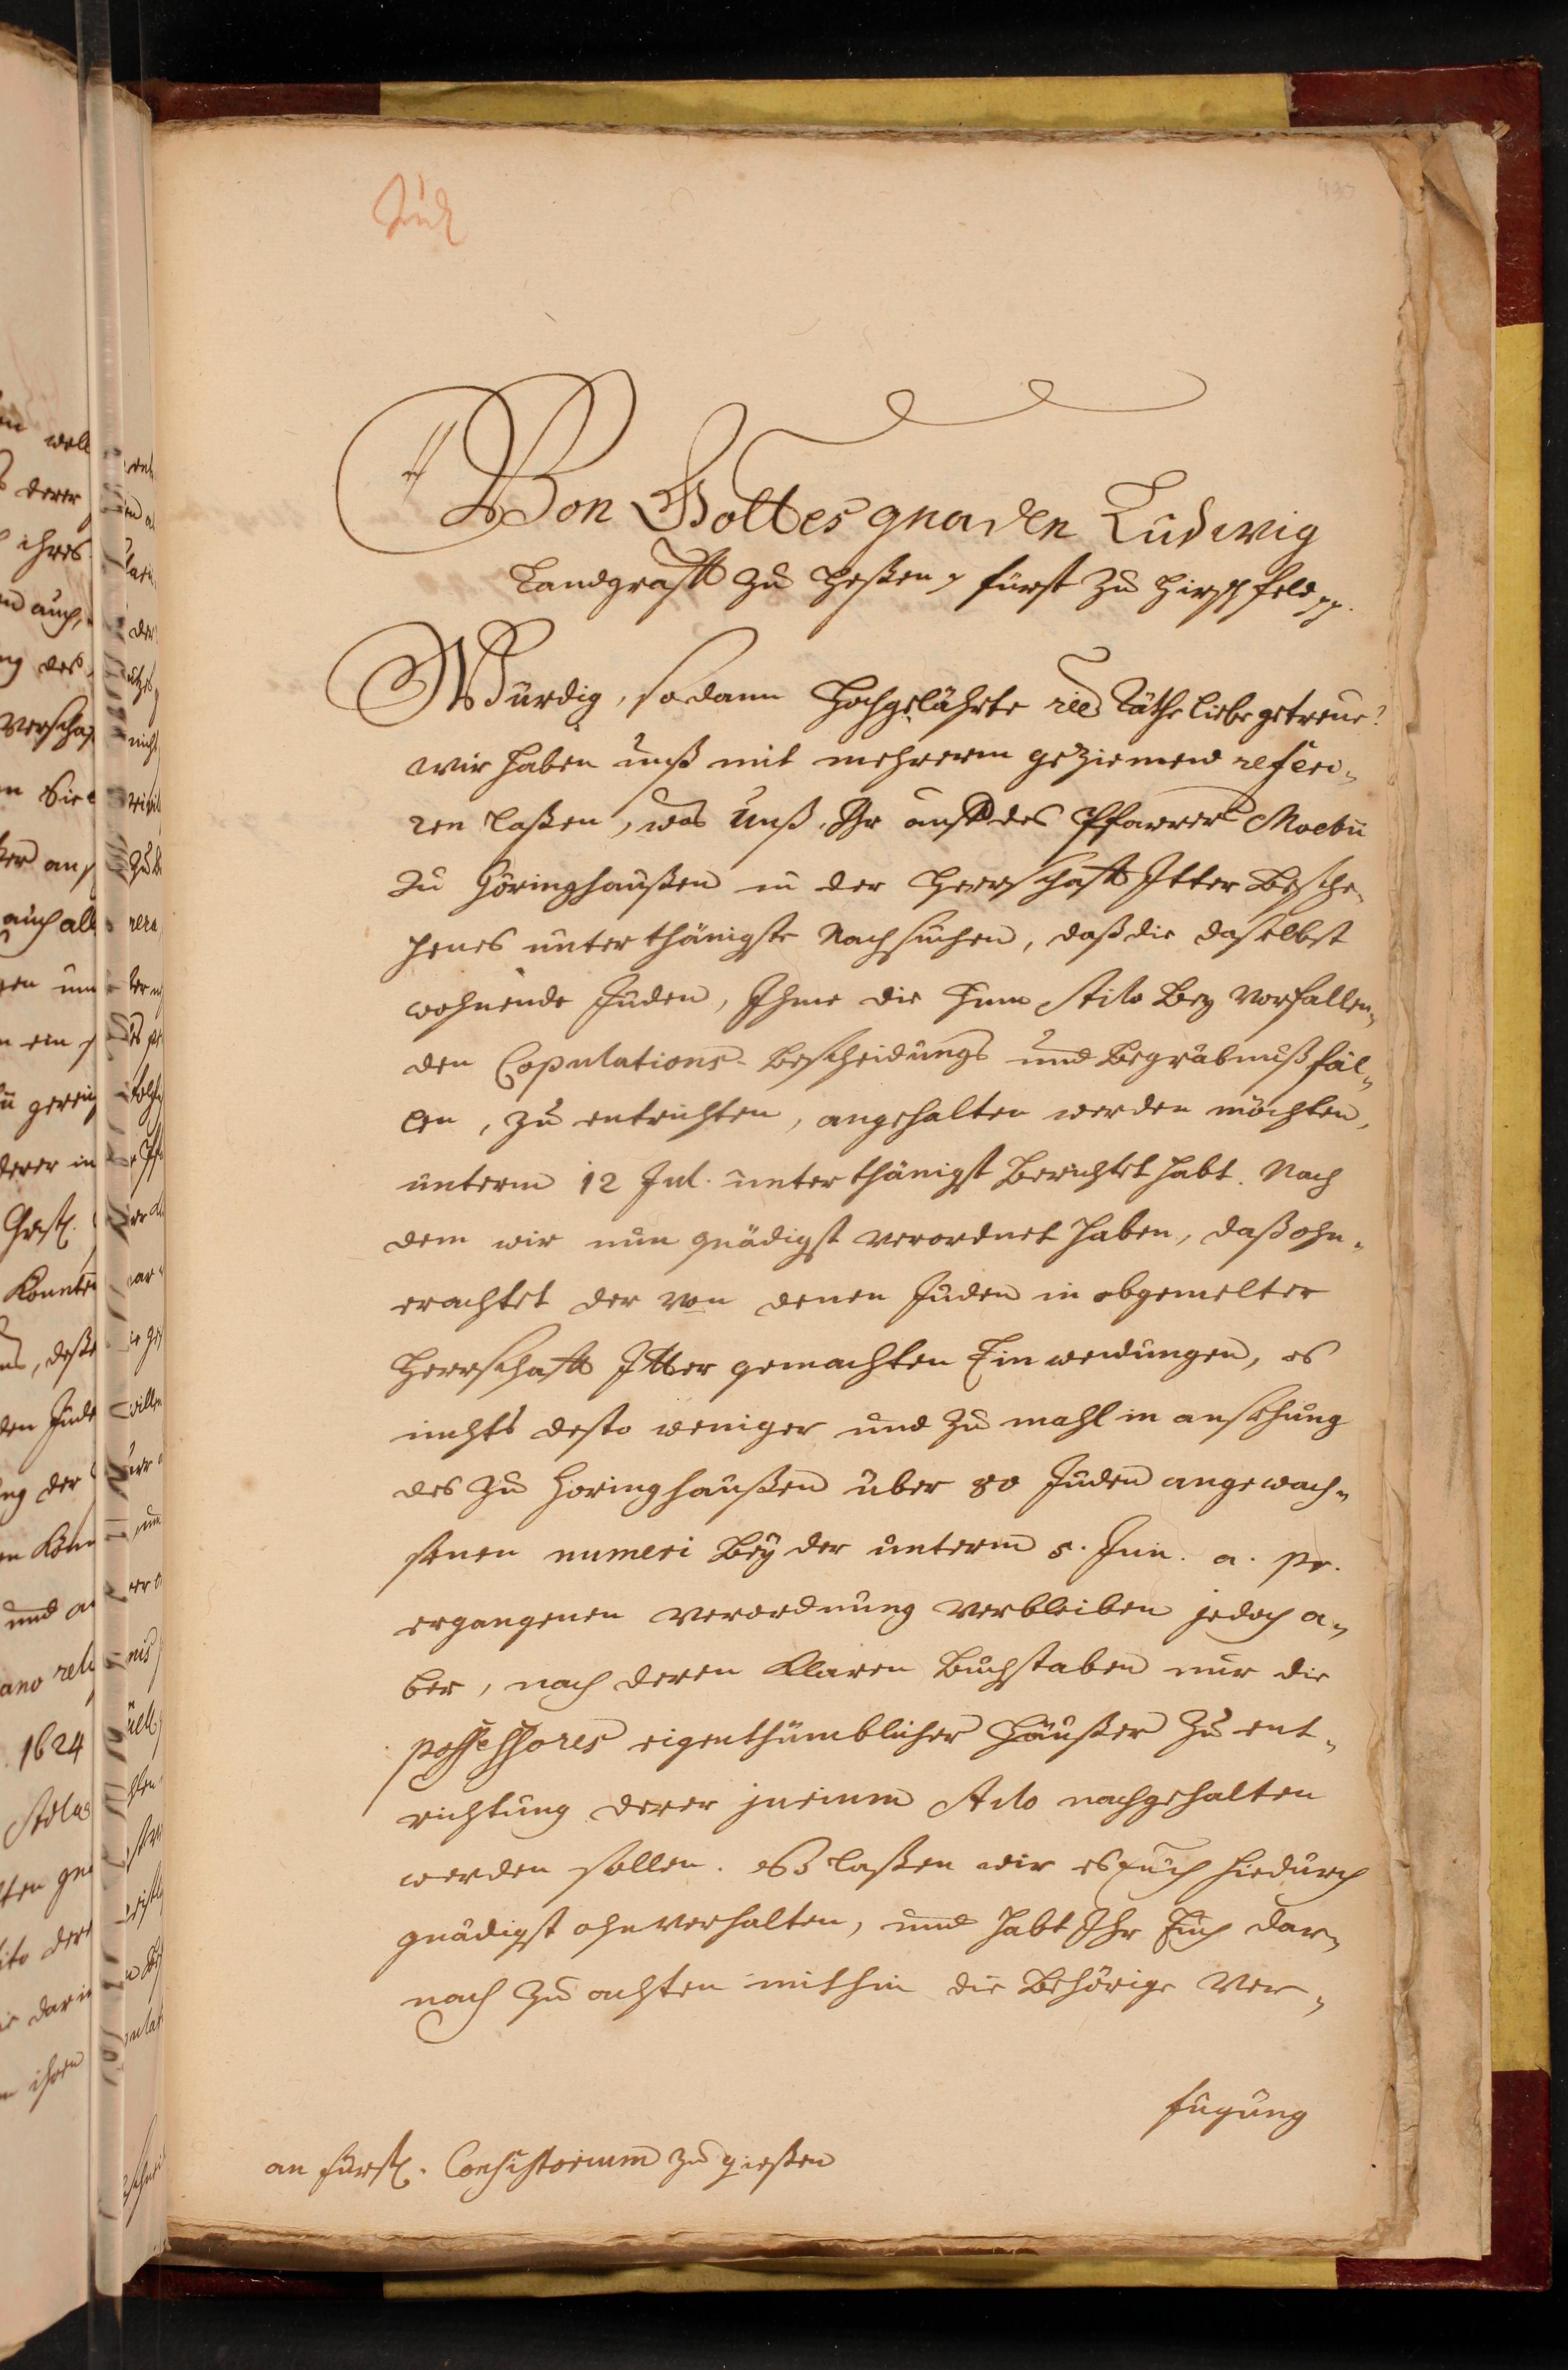 Jud
Von Gottes gnaden Ludwig
Landgraff zu Heßen, fürst zu Hirschfeld pp.
Würdig, sodann Hochgelährte Räthe liebe getreue!
wir haben unß mit mehrerm geziemend referi„
ren laßen, was Unß Ihr auff des Pfarrer Moebii
zu Höringhaußen in der Herrschafft Itter besche„
henes unterthänigste Nachsuchen, daß die daselbst
wohnende Juden, Ihme die Jura Stolæ bey vorfallen„
den Copulations- beschneidungs und begräbnuß fäl„
len, zu entrichten, angehalten werden möchten,
unterm 12 Jul. unterthänigst berichtet habt. Nach
dem wir nun gnädigst verordnet haben, daß ohn„
erachtet der von denen Juden in obgemelter
Herrschafft Itter gemachten Einwendungen, es
nichts desto weniger und zu mahl in ansehung
des zu Höringhaußen über 80 Juden angewach„
senen numeri bey der unterm 5. Jun. a. pr.
ergangenen verordnung verbleiben jedoch a„
ber, nach deren klaren Buchstaben nur die
possessores eigenthümblicher Häußer zu ent„
richtung derer jurium Stolæ angehalten
werden sollen. Alß laßen wir es Euch hiedurch
gnädigst ohnverhalten, und habt Ihr Euch dar„
nach zu achten mithin die behörige Ver„
fügung
an fürstl. Consistorium zu gießen